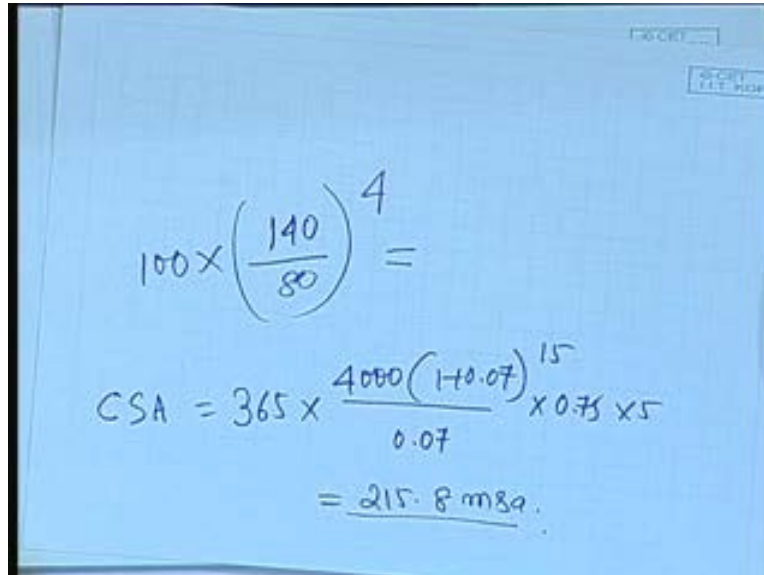 © CET
© CET
I.I.T. KGP
100 × (140/80)^4 =
CSA = 365 × 4000(1+0.07)^15/0.07 × 0.75 × 5
= 215.8 msa.